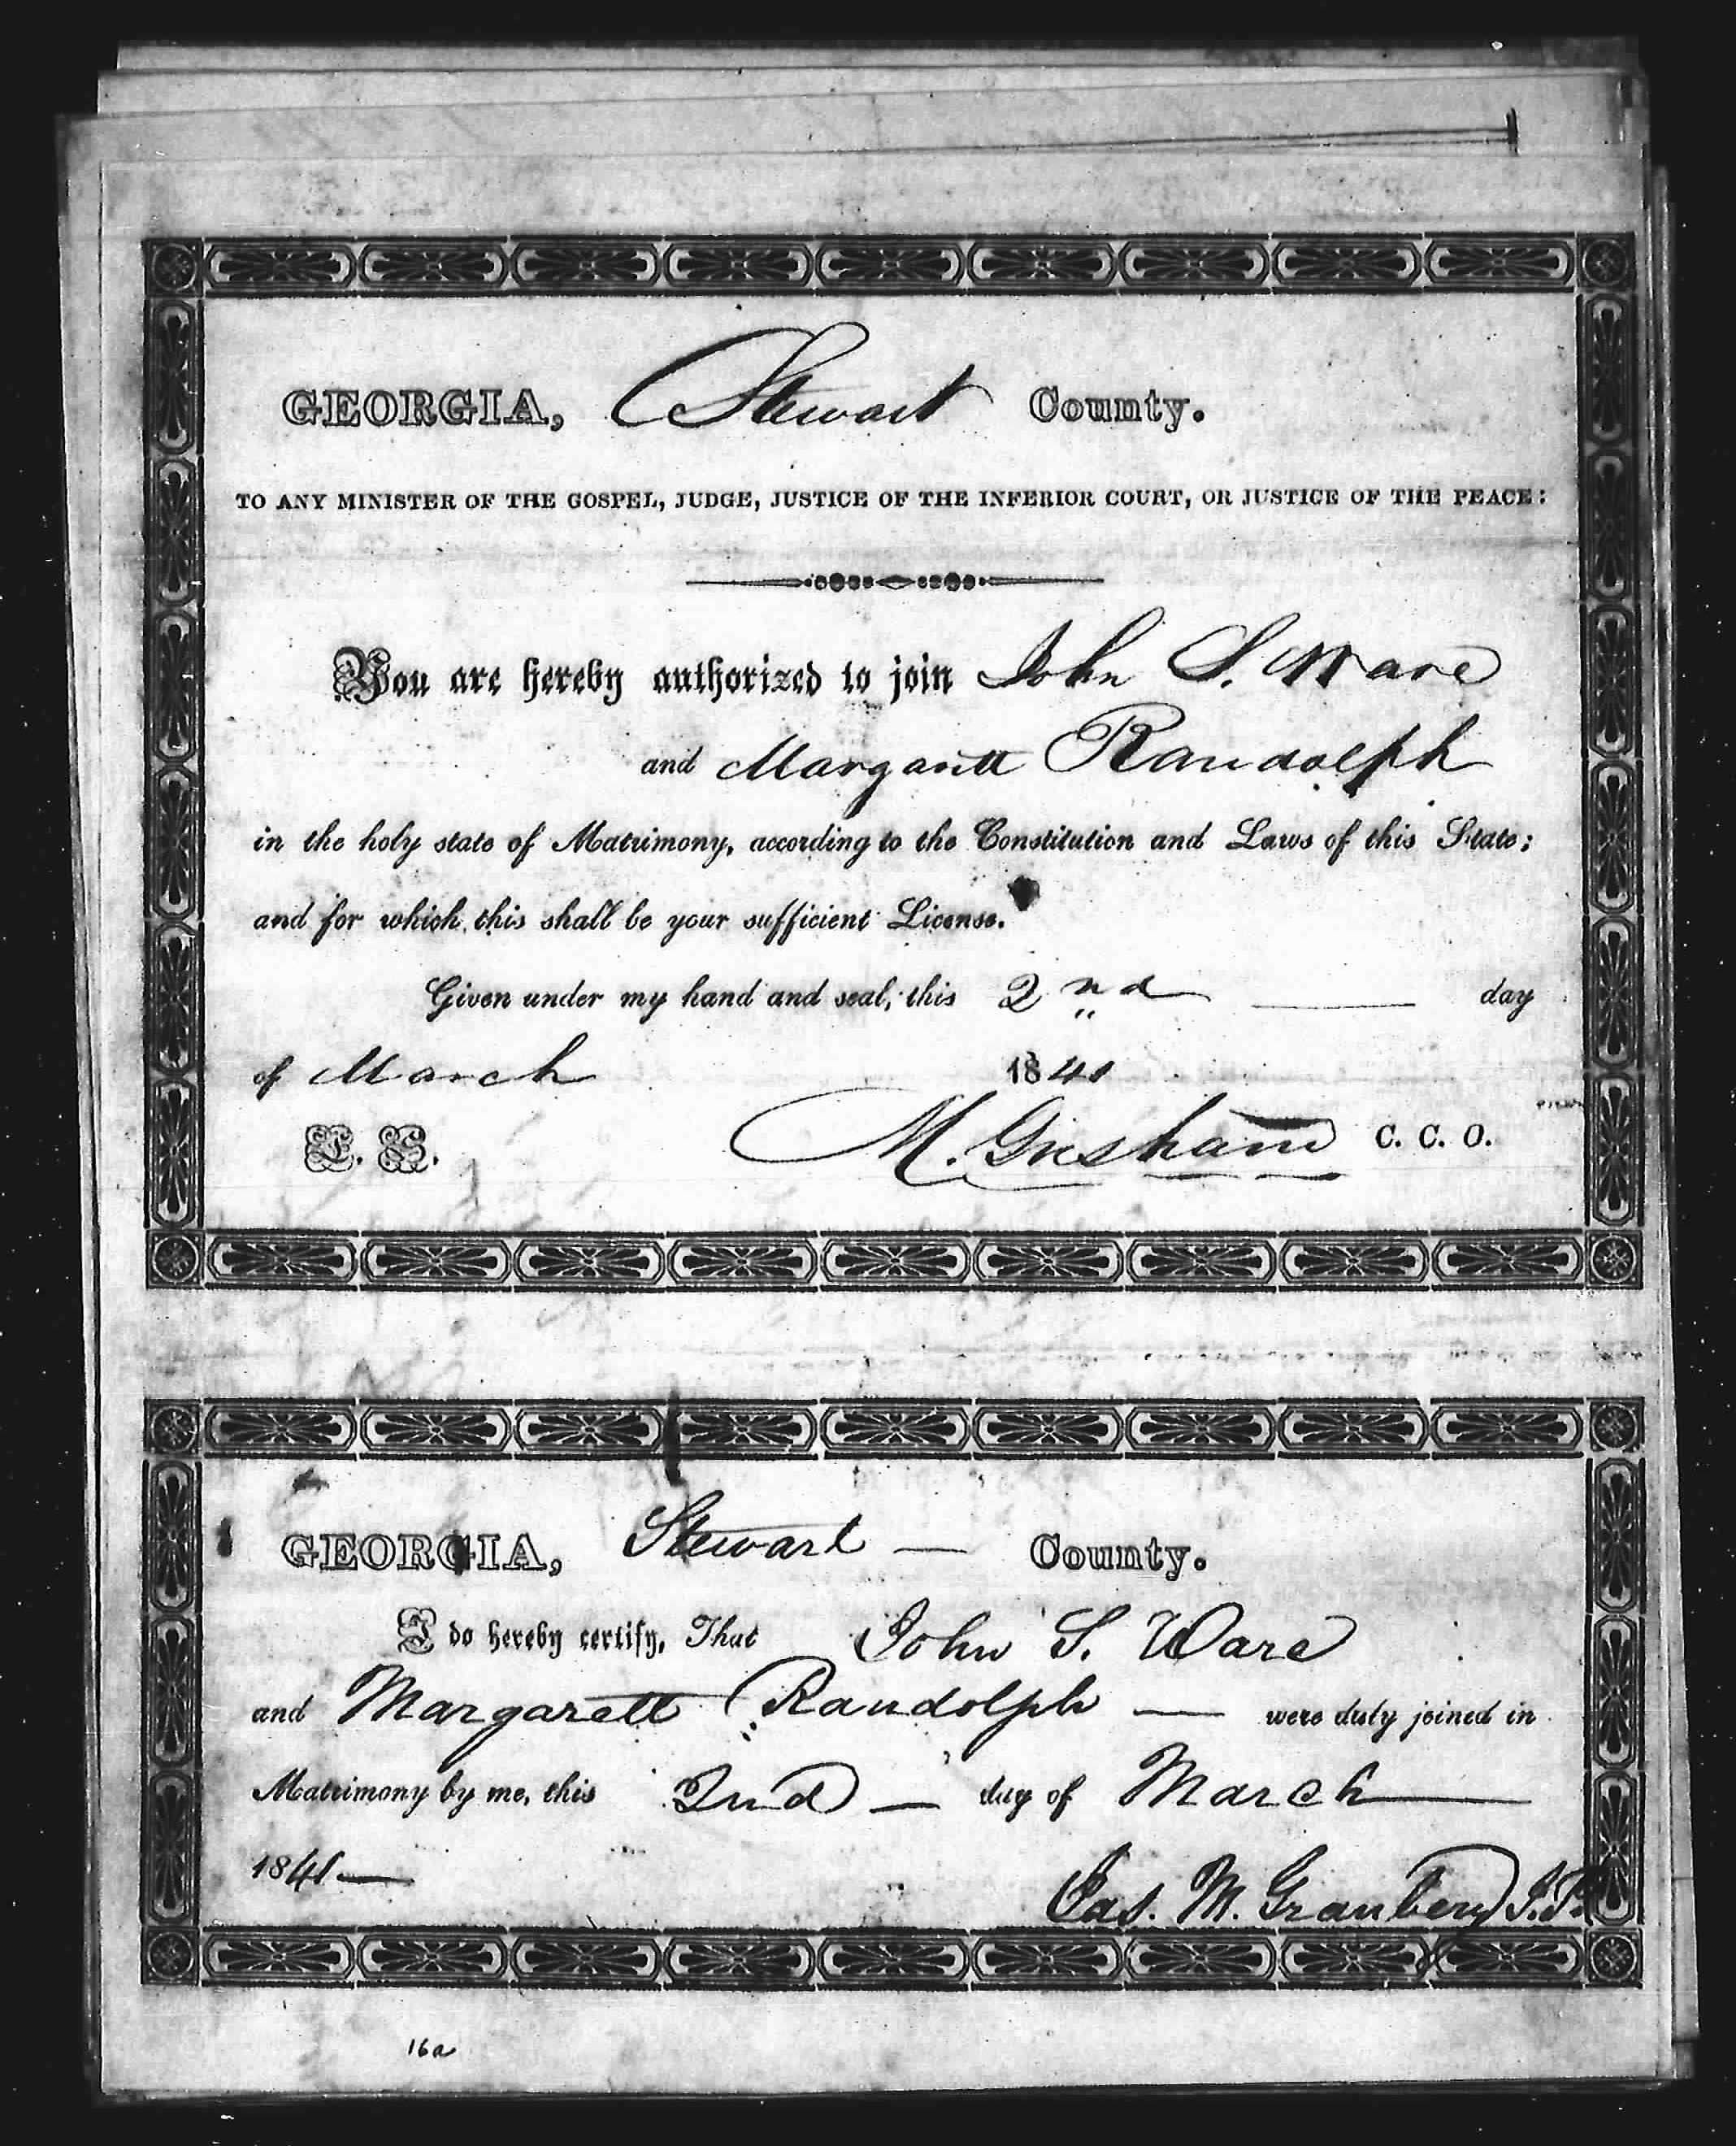 GEORGIA, Stewart County.
TO ANY MINISTER OF THE GOSPEL, JUDGE, JUSTICE OF THE INFERIOR COURT, OR JUSTICE OF THE PEACE:
You are hereby authorized to join John S. Ware
and Margarett Randolph
in the holy state of Matrimony, according to the Constitution and Laws of this State;
and for which this shall be your sufficient License.
Given under my hand and seal, this 2nd day
of March 1841
L. S. M. Gresham C. C. O.
GEORGIA, Stewart — County.
I do hereby certify, That John S. Ware
and Margarett Randolph — were duly joined in
Matrimony by me, this 2nd — day of March
1841—
Jas. M. Granbery J.P.
16a